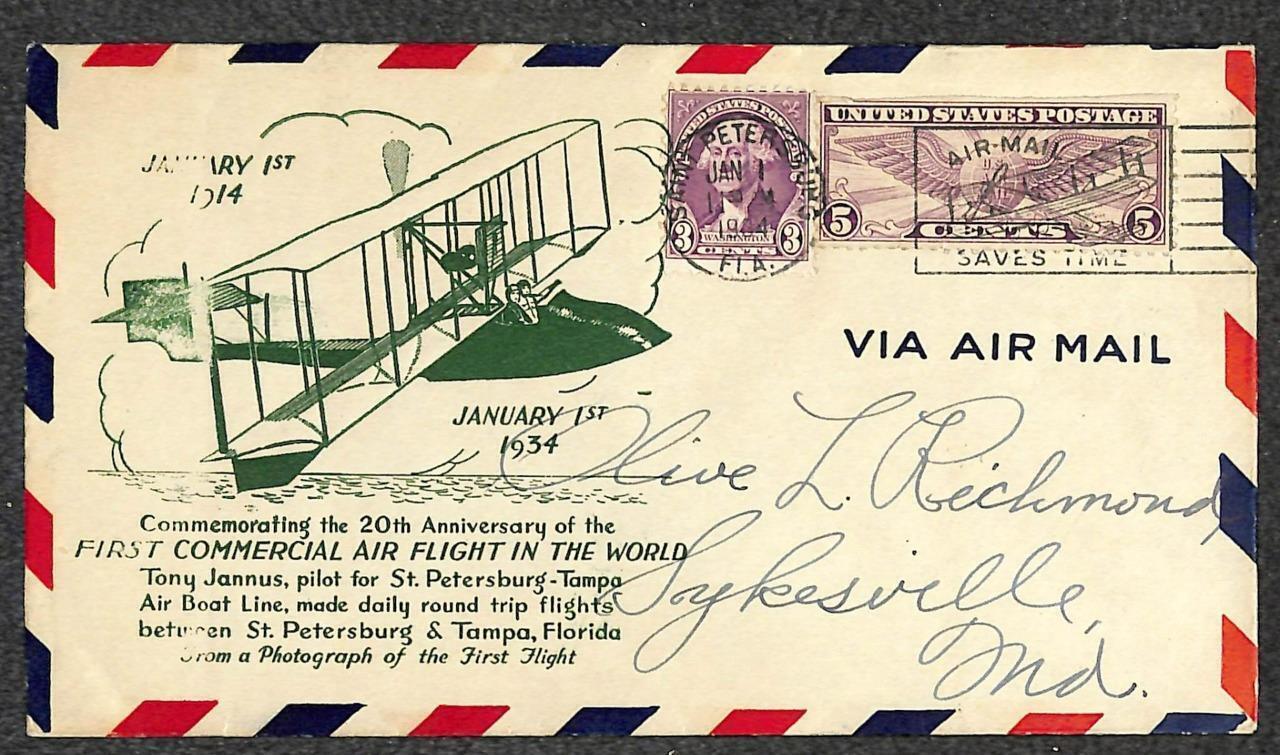 JANUARY 1ST
1914
JANUARY 1ST
1934
Commemorating the 20th Anniversary of the
FIRST COMMERCIAL AIR FLIGHT IN THE WORLD
Tony Jannus, pilot for St. Petersburg-Tampa
Air Boat Line, made daily round trip flights
between St. Petersburg & Tampa, Florida
From a Photograph of the First Flight
UNITED STATES POSTAGE
3 WASHINGTON 3
CENTS
SAINT PETERSBURG
JAN 1
1934
FLA.
UNITED STATES POSTAGE
5 CENTS 5
AIR-MAIL
SAVES TIME
VIA AIR MAIL
Olive L. Richmond
Sykesville,
Md.